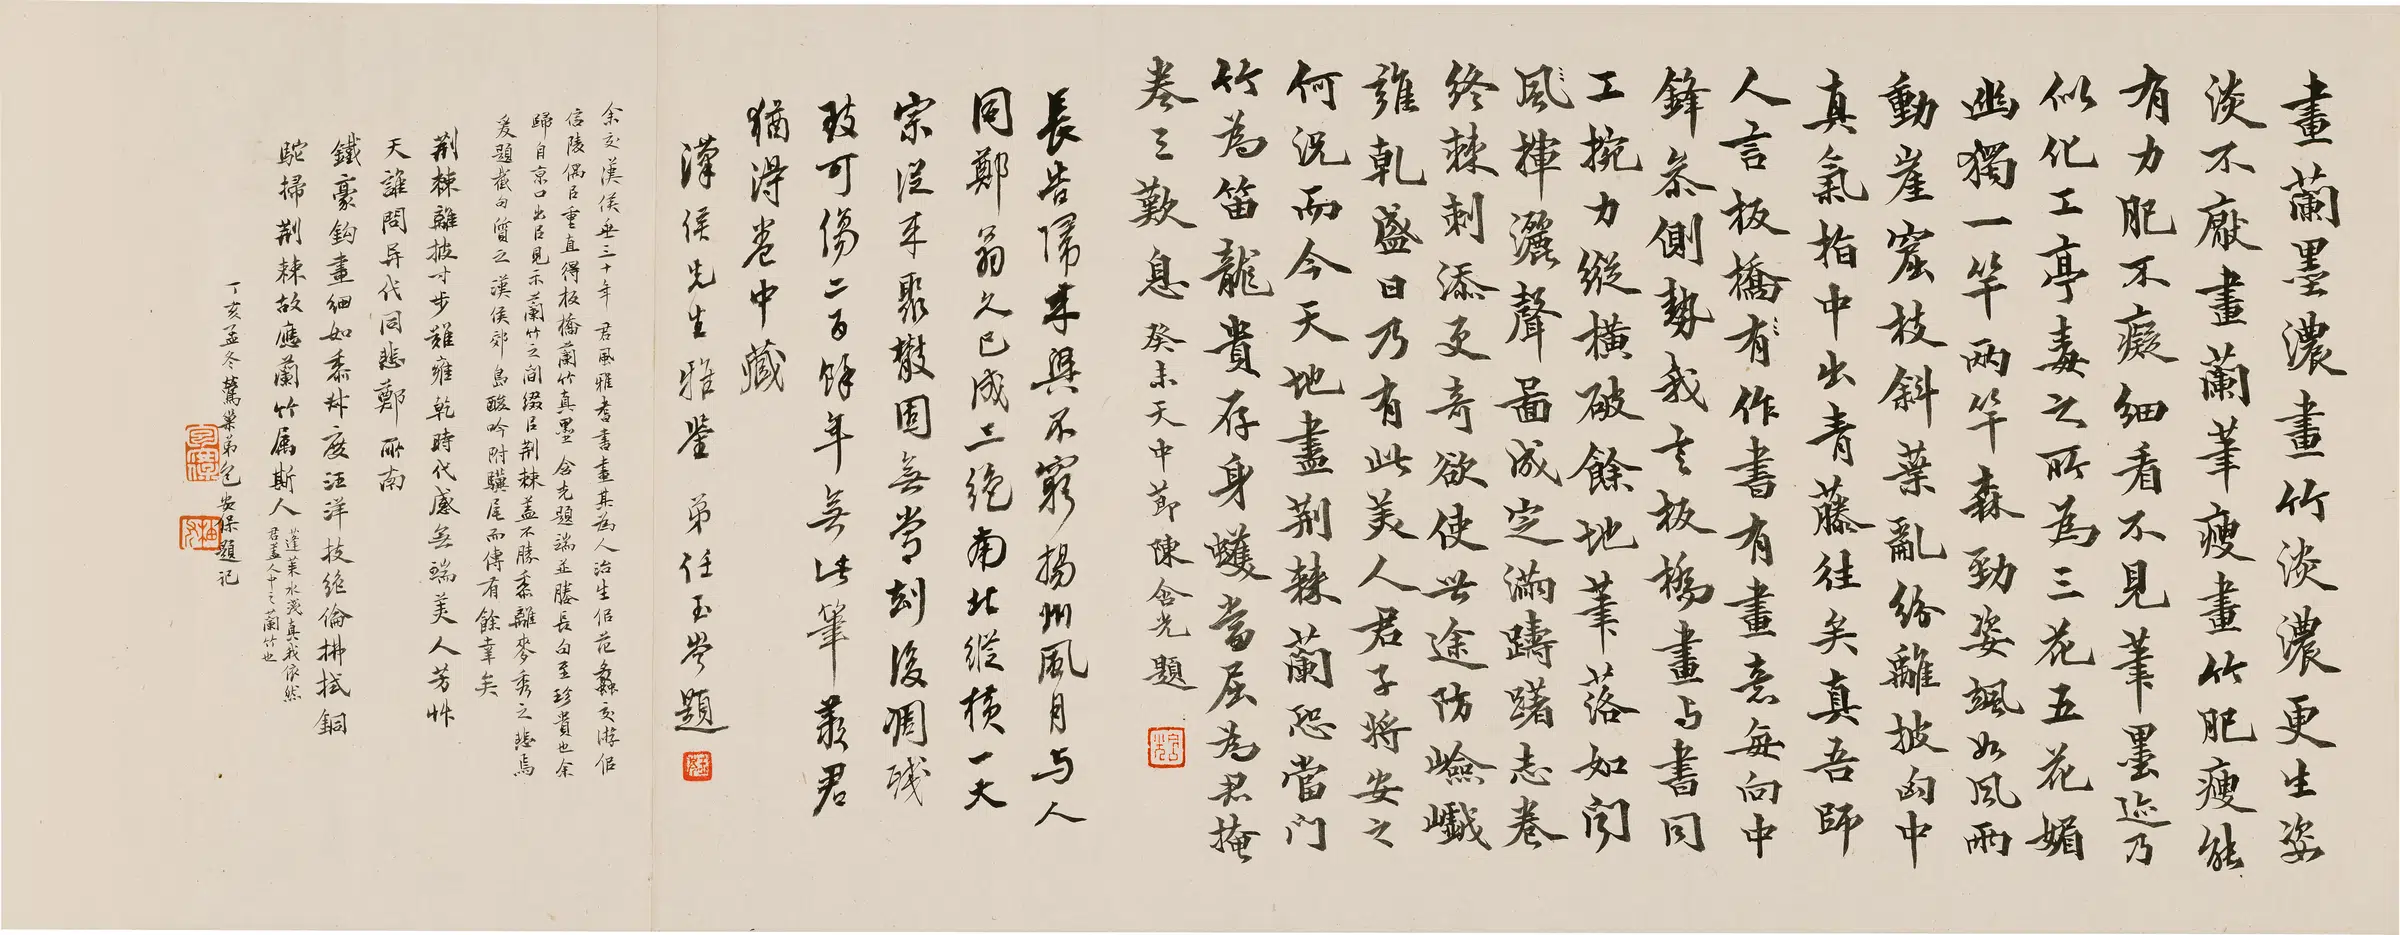 畫蘭墨濃畫竹淡濃更生姿
淡不厭畫蘭筆瘦畫竹肥瘦能
有力肥不癡細看不見筆墨迹乃
似化工亭毒之所為三花五花媚
幽獨一竿兩竿森勁姿颯如風雨
動崖窟枝斜葉亂紛離披匈中
真氣指中出青藤往矣真吾師
人言板橋有作書有畫意每向中
鋒參側勢我言板橋畫與書同
工挽力縱橫破餘地筆落如聞
風揮灑聲圖成定滿躊躇志卷
終棘刺添更奇欲使世途防嶮巇
雍乾盛日乃有此美人君子將安之
何況而今天地盡荆棘蘭恐當門
竹為笛龍貴存身蠖當屈為君掩
卷三歎息 癸未天中節陳含光題
長告歸來興不窮揚州風月與人
同鄭翁久已成三絶南北縱橫一大
宗從來聚散固無常劫後凋殘
致可傷二百餘年無恙筆羨君
猶得卷中藏
漢侯先生雅鑒 弟任玉岑題
余交漢侯垂三十年 君風雅耆書畫其為人治生侣范蠡交游侣
信陵偶以重直得板橋蘭竹真墨 含光題端並媵長句至珍貴也余
歸自京口出以見示蘭竹之間綴以荆棘蓋不勝黍離麥秀之悲焉
爰題截句質之 漢侯郊島酸吟附驥尾而傳有餘幸矣
荆棘離披寸步難雍乾時代感無端美人芳艸
天誰問异代同悲鄭所南
鐵豪鈎畫細如黍艸度汪洋技絶倫拂拭銅
駝掃荆棘故應蘭竹属斯人 蓬萊水淺真我依然
君蓋人中之蘭竹也
丁亥孟冬鷟巢弟包安保題記